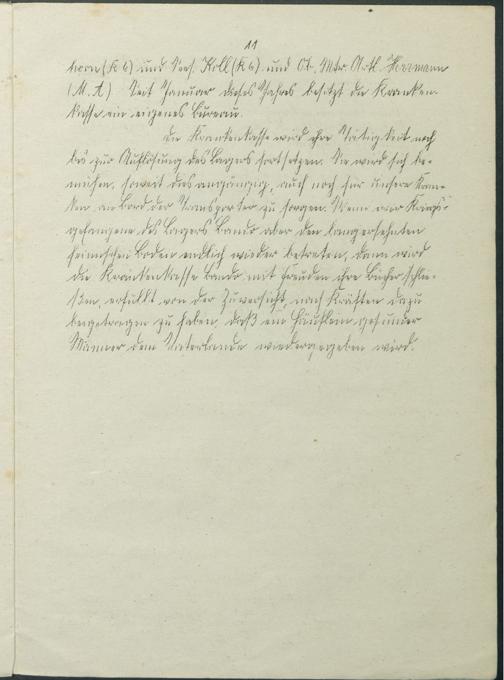 11
horn (K 6) und Sees. Koll (K 6) und Ob. Mtr. Artl. Hermann
(M. A) Seit Januar dieses Jahres besitzt die Kranken-
kasse ein eigenes Büreau.
Die Krankenkasse wird ihre Tätigkeit noch
bis zur Auflösung des Lagers fortsetzen. Sie wird sich be-
mühen, soweit dies angängig, auch noch für unsere Kran-
ken an Bord der Transporter zu sorgen. Wenn wir Kriegs-
gefangene des Lagers Bando aber den langersehnten
heimischen Boden endlich wieder betreten, dann wird
die Krankenkasse Bando mit Freuden ihre Bücher schlie-
ßen, erfüllt von der Zuversicht, nach Kräften dazu
beigetragen zu haben, daß ein Häuflein gesunder
Männer dem Vaterlande wiedergegeben wird.